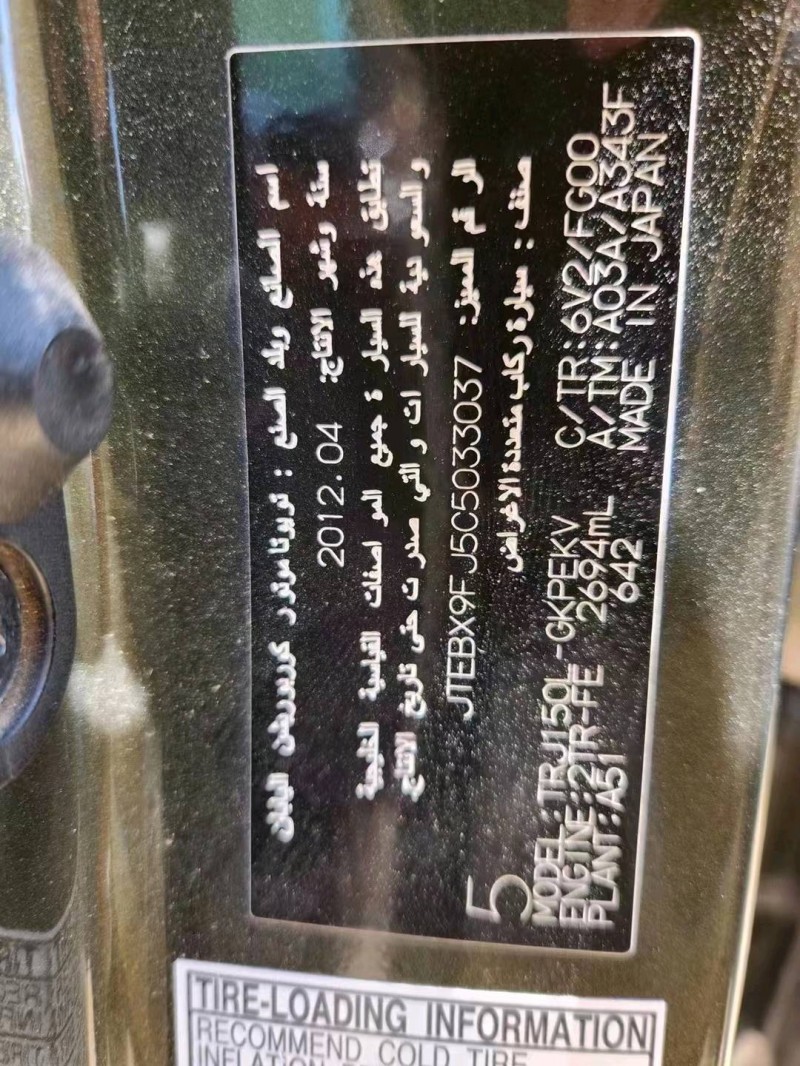 اسم الصانع وبلد الصنع : تويوتا موتور كوربوريشن اليابان
سنة وشهر الانتاج: 2012.04
تطابق هذه السيارة جميع المواصفات القياسية الخليجية
والسعودية للسيارات والتي صدرت حتى تاريخ الانتاج
الرقم المميز: JTEBX9FJ5C5033037
صنف : سيارة ركاب متعددة الاغراض
5
MODEL:TRJ150L-GKPEKV C/TR:6V2/FG00
ENGINE:2TR-FE 2694mL A/TM:A03A/A343F
PLANT:A51 642 MADE IN JAPAN
TIRE-LOADING INFORMATION
RECOMMEND COLD TIRE
INFLATION